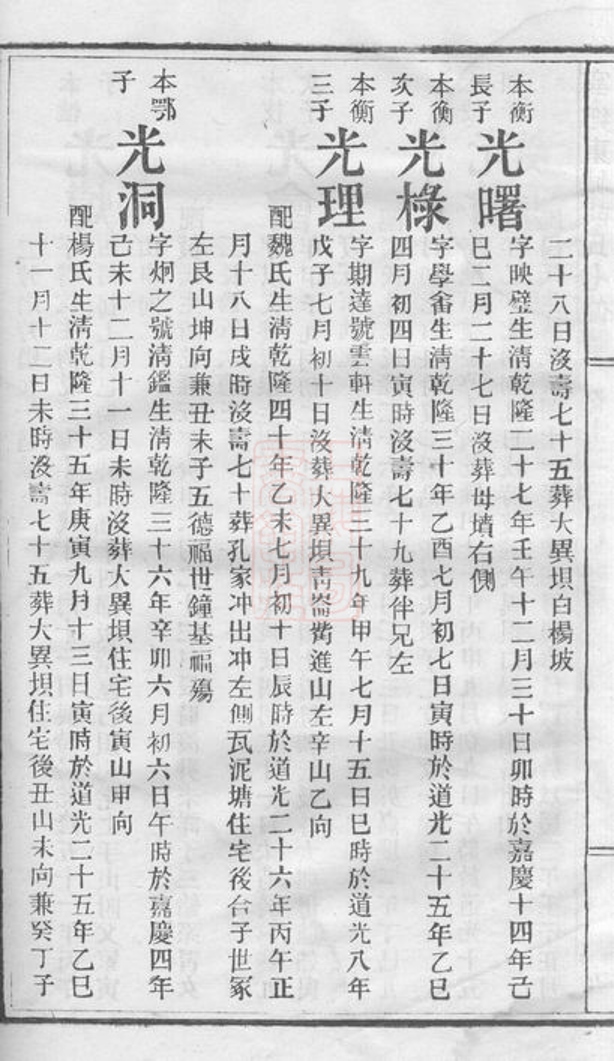 二十八日沒壽七十五葬大異垻白楊坡
本衡長子
光曙
字映璧生清乾隆二十七年壬午十二月三十日卯時於嘉慶十四年己
巳二月二十七日沒葬母墳右側
本衡次子
光樑
字學畬生清乾隆三十年乙酉七月初七日寅時於道光二十五年乙巳
四月初四日寅時沒壽七十九葬伴兄左
本衡三子
光理
字期達號雲軒生清乾隆三十九年甲午七月十五日巳時於道光八年
戊子七月初十日沒葬大異垻靑崙嘴進山左辛山乙向
配魏氏生清乾隆四十年乙未七月初十日辰時於道光二十六年丙午正
月十八日戌時沒壽七十葬孔家冲出冲左側瓦泥塘住宅後台子世冢
左艮山坤向兼丑未子五德福世鐘基福殤
本鄂子
光洞
字炯之號清鑑生清乾隆三十六年辛卯六月初六日午時於嘉慶四年
己未十二月十一日未時沒葬大異垻住宅後寅山申向
配楊氏生清乾隆三十五年庚寅九月十三日寅時於道光二十五年乙巳
十一月十二日未時沒壽七十五葬大異垻住宅後丑山未向兼癸丁子